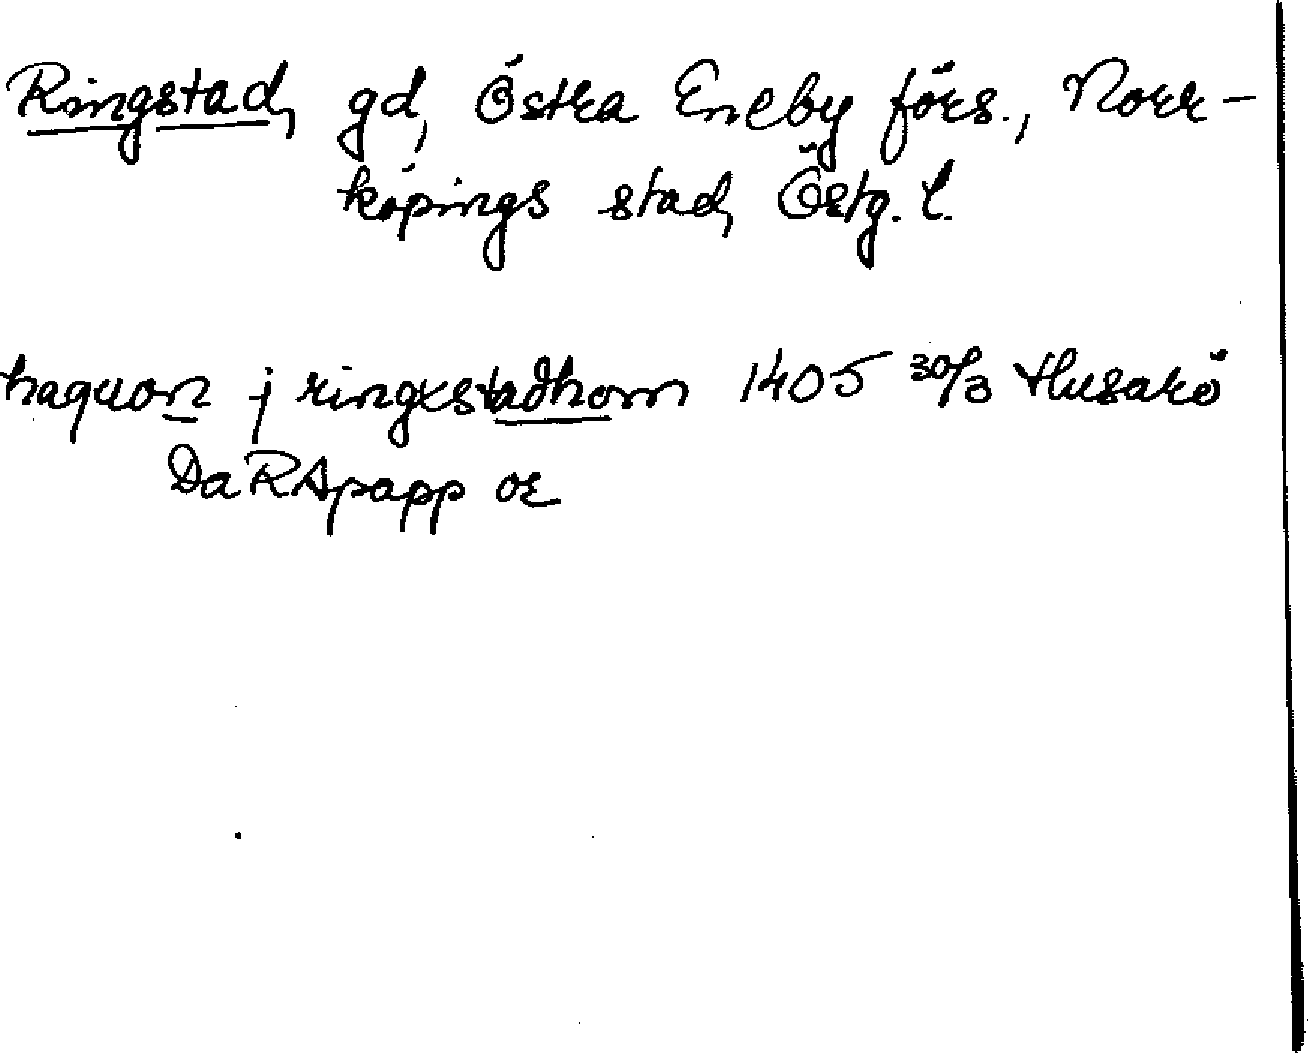 Ringstad, gd, Östra Eneby förs., Norr-
köpings stad, Östg. l.
haquon j ringxstadhom 1405 30/3 Husarö
DaRApapp or